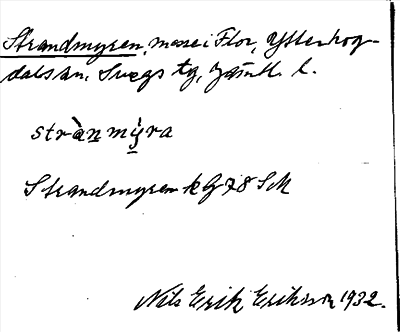 Strandmyren, mosse i Flor, Ytterhog-
dals sn, Svegs tg, Jämtl. l.
stràn mỳra
Strandmyren kG 78 SM
Nils Erik Eriksson 1932.